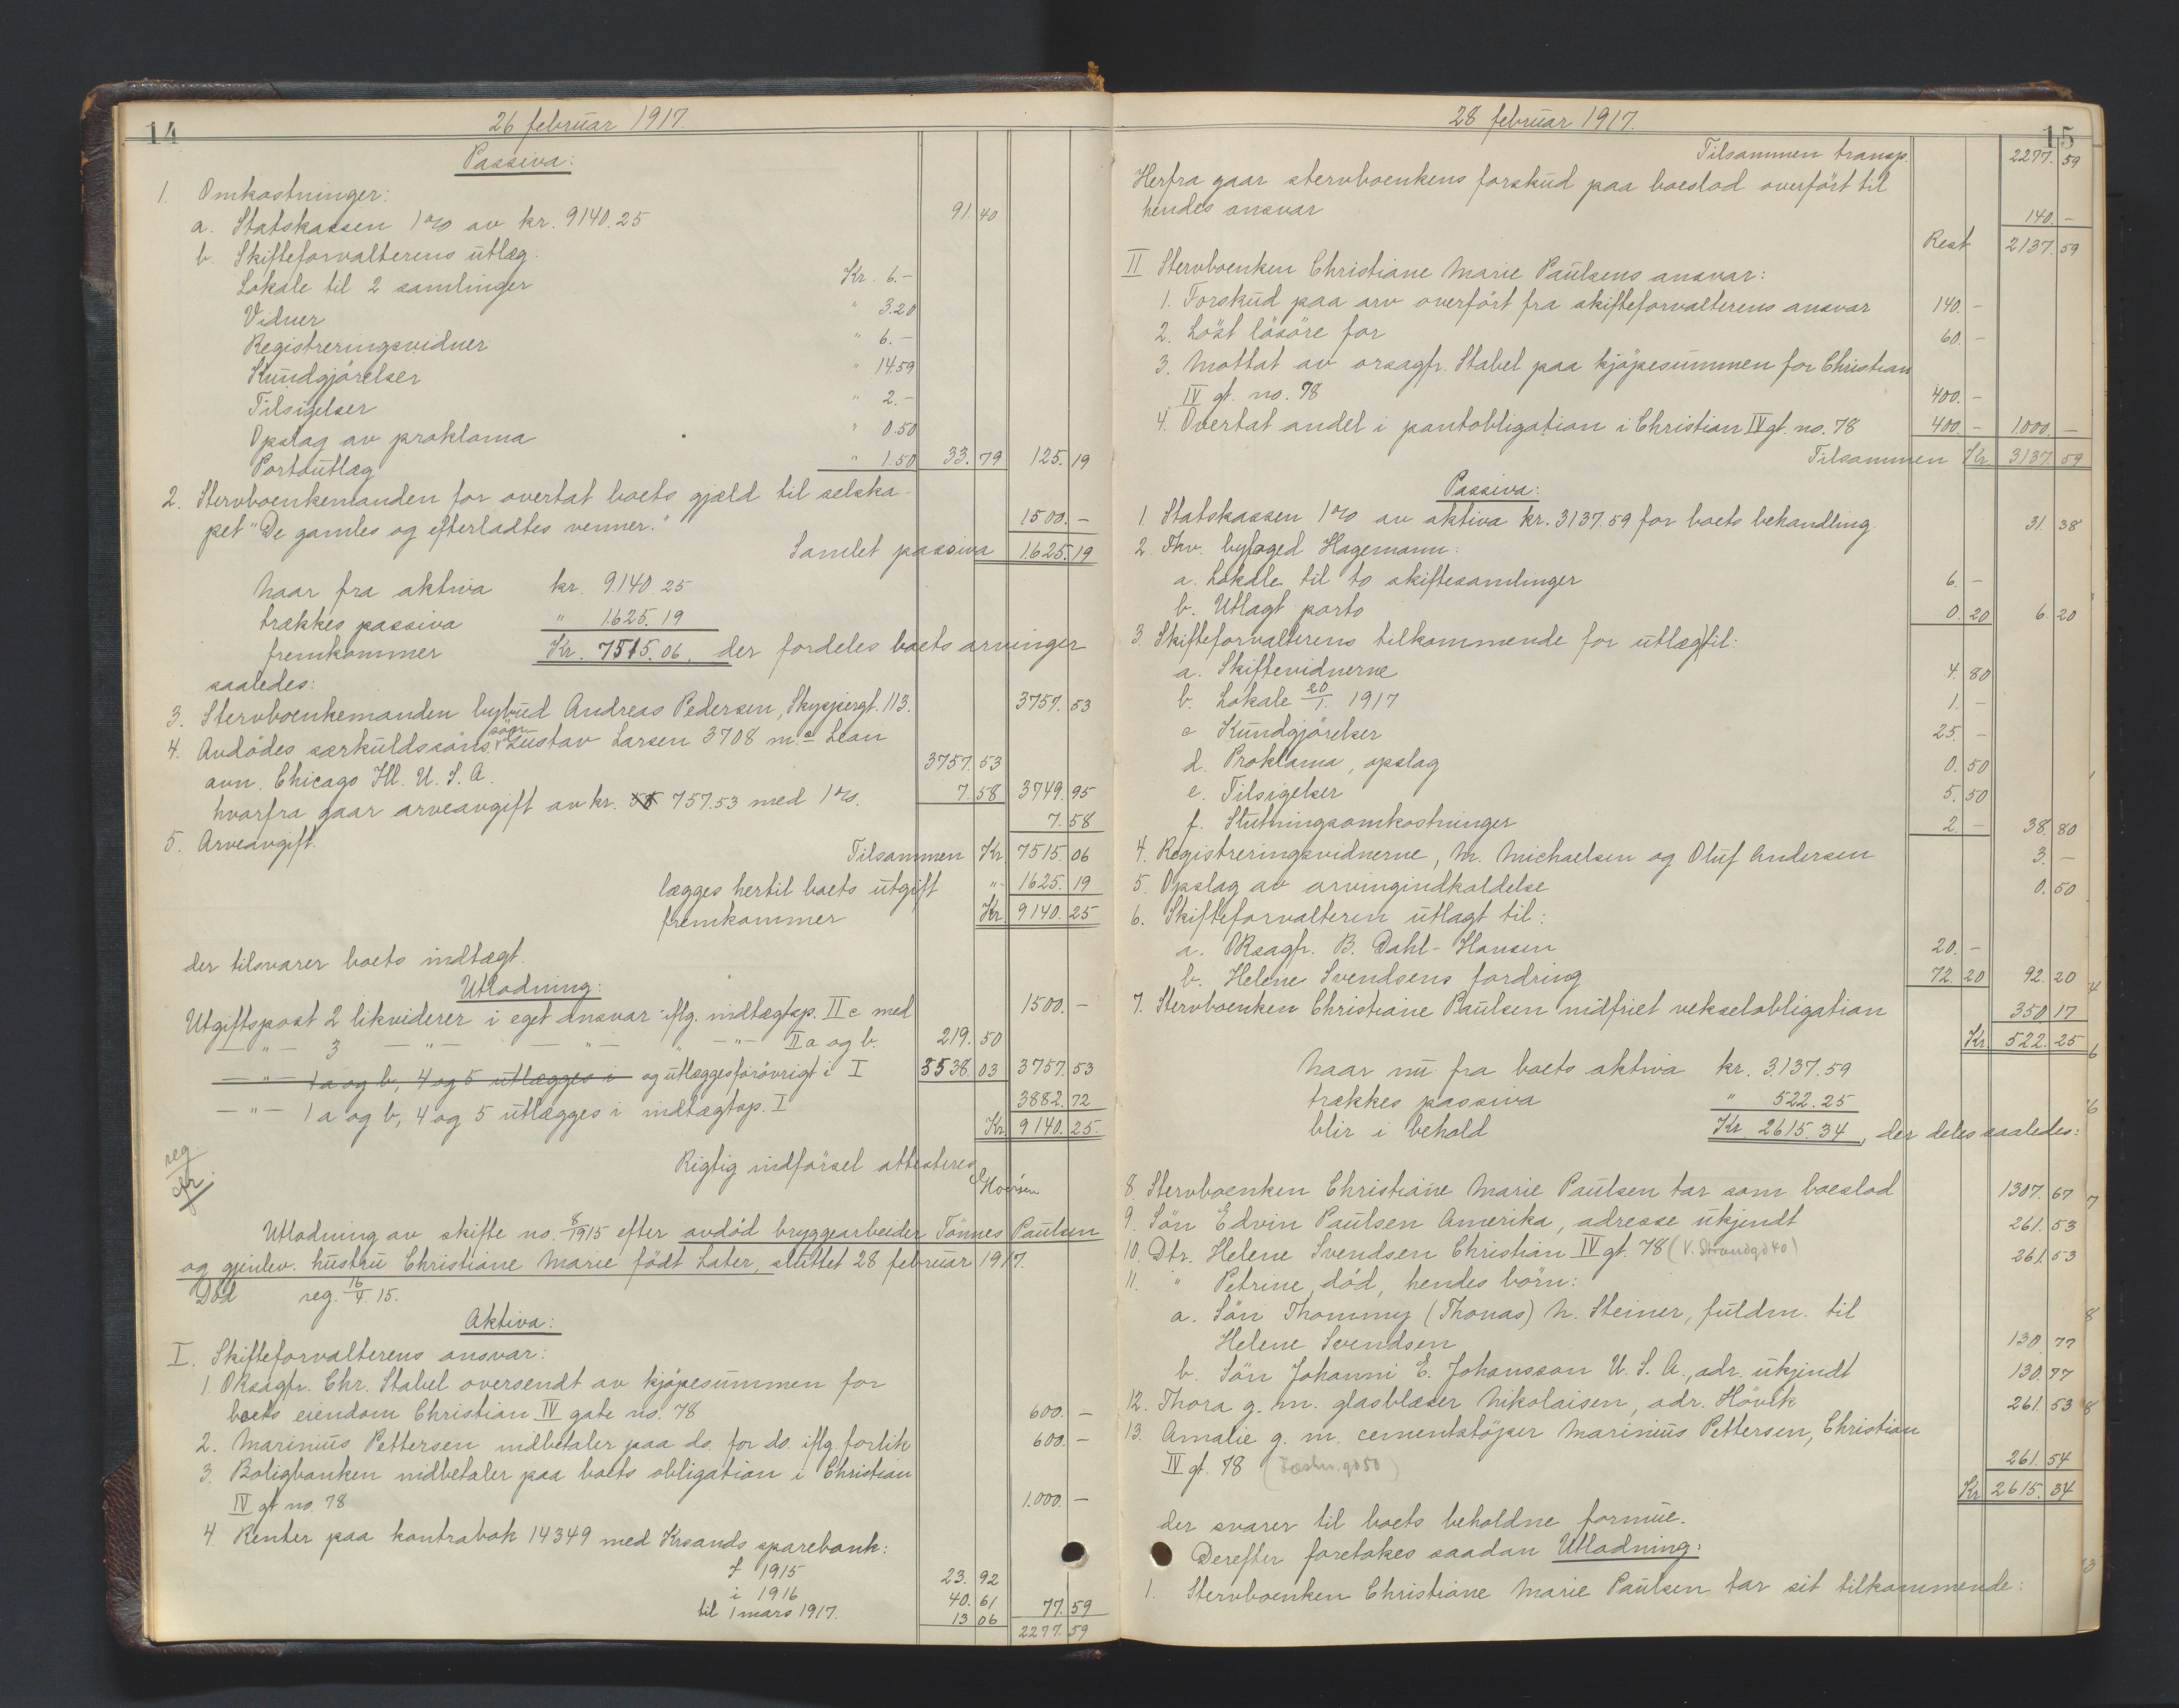 14
26 februar 1917.
Passiva:
1. Omkostninger:
a. Statskassen 1% av kr. 9140.25 91.40
b. Skifteforvalterens utlæg:
Lokale til 2 samlinger Kr. 6.-
Vidner " 3.20
Registreringsvidner " 6.-
Kundgjörelser " 14.59
Tilsigelser " 2.-
Opslag av proklama " 0.50
Portoutlæg " 1.50 33.79 125.19
2. Stervboenkemanden for overtat boets gjæld til selska-
pet "De gamles og efterladtes venner." 1500.-
Samlet passiva 1625.19
Naar fra aktiva kr. 9140.25
trækkes passiva " 1625.19
fremkommer Kr. 7515.06, der fordeles boets arvinger
saaledes:
3. Stervboenkemanden bybud Andreas Pedersen, Skyspergt. 113. 3757.53
4. Avdödes særkuldssöns sön Gustav Larsen 3708 m.c Lean
avn. Chicago Ill. U. S. A. 3757.53
hvorfra gaar arveavgift av kr. 757.53 med 1%. 7.58 3749.95
5. Arveavgift. 7.58
Tilsammen Kr. 7515.06
lægges hertil boets utgift " 1625.19
fremkommer Kr. 9140.25
der tilsvarer boets indtægt.
Utlodning:
Utgiftspost 2 likviderer i eget ansvar iflg. indtægtsp. II c med 1500.-
-"- 3 -"- -"- -"- II a og b. 219.50
-"- 1 a og b, 4 og 5 utlægges i og utlægges forövrigt i I 3538.03 3757.53
-"- 1 a og b, 4 og 5 utlægges i indtægtsp. I 3882.72
Kr. 9140.25
Rigtig indförsel attesteres
reg
Utlodning av skifte no. 8/1915 efter avdöd bryggearbeider Tönnes Paulsen
og gjenlev. hustru Christiane Marie födt Later, sluttet 28 februar 1917.
Död reg. 16/4.15.
Aktiva:
I. Skifteforvalterens ansvar:
1. ORsagfr. Chr. Stabel oversendt av kjöpesummen for
boets eiendom Christian IV gate no. 78 600.-
2. Marinius Pettersen indbetaler paa do. for do. iflg. forlik 600.-
3. Boligbanken indbetaler paa boets obligation i Christian
IV gt no. 78 1.000.-
4. Renter paa kontrabok 14349 med Krsands sparebank:
I 1915 23.92
i 1916 40.61
til 1 mars 1917. 13 06 77.59
2277.59
15
28 februar 1917.
Tilsammen transp. 2277.59
Herfra gaar stervboenkens forskud paa boeslod overfört til
hendes ansvar 140.-
Rest 2137.59
II Stervboenken Christiane Marie Paulsens ansvar:
1. Forskud paa arv overfört fra skifteforvalterens ansvar 140.-
2. Löst lösöre for 60.-
3. Mottat av orsagfr. Stabel paa kjöpesummen for Christian
IV gt. no. 78 400.-
4. Overtat andel i pantobligation i Christian IV gt. no. 78 400.- 1000.-
Tilsammen Kr. 3137.59
Passiva:
1. Statskassen 1% av aktiva kr. 3137.59 for boets behandling. 31.38
2. Fhv. byfoged Hagemann:
a. Lokale til to skiftesamlinger 6.-
b. Utlagt porto 0.20 6.20
3. Skifteforvalterens tilkommende for utlæg til:
a. Skiftevidnerne 4.80
b. Lokale 20/1. 1917 1.-
c Kundgjörelser 25.-
d. Proklama, opslag 0.50
e. Tilsigelser 5.50
f. Slutningsomkostninger 2.- 38.80
4. Registreringsvidnerne, M. Michaelsen og Oluf Andersen 3.-
5. Opslag av arvingindkaldelse 0.50
6. Skifteforvalteren utlagt til:
a. ORsagfr. B. Dahl-Hansen 20.-
b. Helene Svendsens fordring 72.20 92.20
7. Stervboenken Christiane Paulsen indfriet vekselobligation 350 17
Kr. 522.25
Naar nu fra boets aktiva kr. 3.137.59
trækkes passiva " 522.25
blir i behold Kr. 2615.34, der deles saaledes:
8. Stervboenken Christiane Marie Paulsen tar som boeslod 1307.67
9. Sön Edvin Paulsen Amerika, adresse ukjendt 261.53
10. Dtr. Helene Svendsen Christian IV gt. 78 (V. Strandgd 40) 261.53
11. " Petrine, död, hendes börn:
a. Sön Thommy (Thomas) N. Steiner, fuldm. til
Helene Svendsen 130.77
b. Sön Johanni E. Johansson U. S. A., adr. ukjendt 130.77
12. Thora g. m. glasblæser Nikolaisen, adr. Hövik 261.53
13. Amalie g. m. cementstöper Marinius Pettersen, Christian
IV gt. 78 261.54
Kr 2615.34
der svarer til boets beholdne formue.
Derefter foretakes saadan Utlodning:
1. Stervboenken Christiane Marie Paulsen tar sit tilkommende: